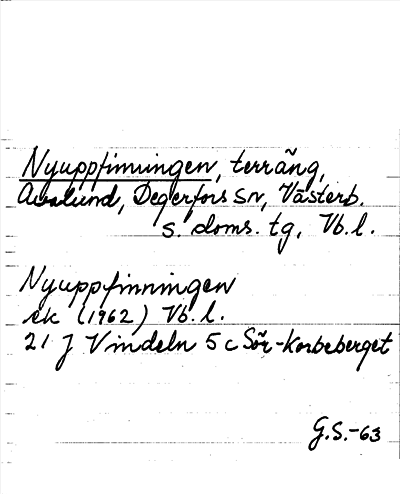 Nyuppfinningen, terräng,
Avalund, Degerfors sn, Västerb.
s. doms. tg, Vb. l.
Nyuppfinningen
ek (1962) Vb. l.
21 J Vindeln 5 c Sör-Korbeberget
G.S.-63